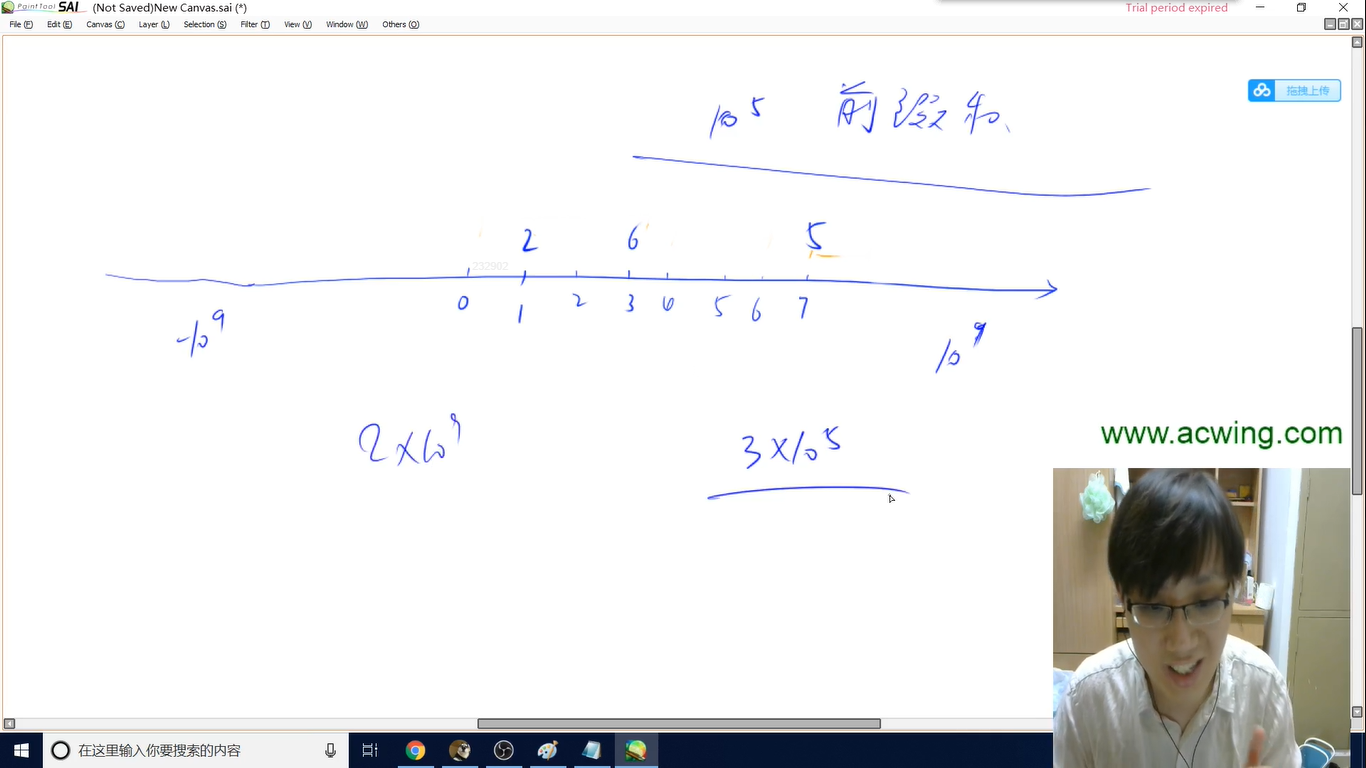 PaintTool SAI (Not Saved)New Canvas.sai (*)
Trial period expired
File (F) Edit (E) Canvas (C) Layer (L) Selection (S) Filter (T) View (V) Window (W) Others (O)
10⁵ 前缀和
拖拽上传
2 6 5
232902
0 1 2 3 4 5 6 7
-10⁹
10⁹
2×10⁹ 3×10⁵
www.acwing.com
在这里输入你要搜索的内容